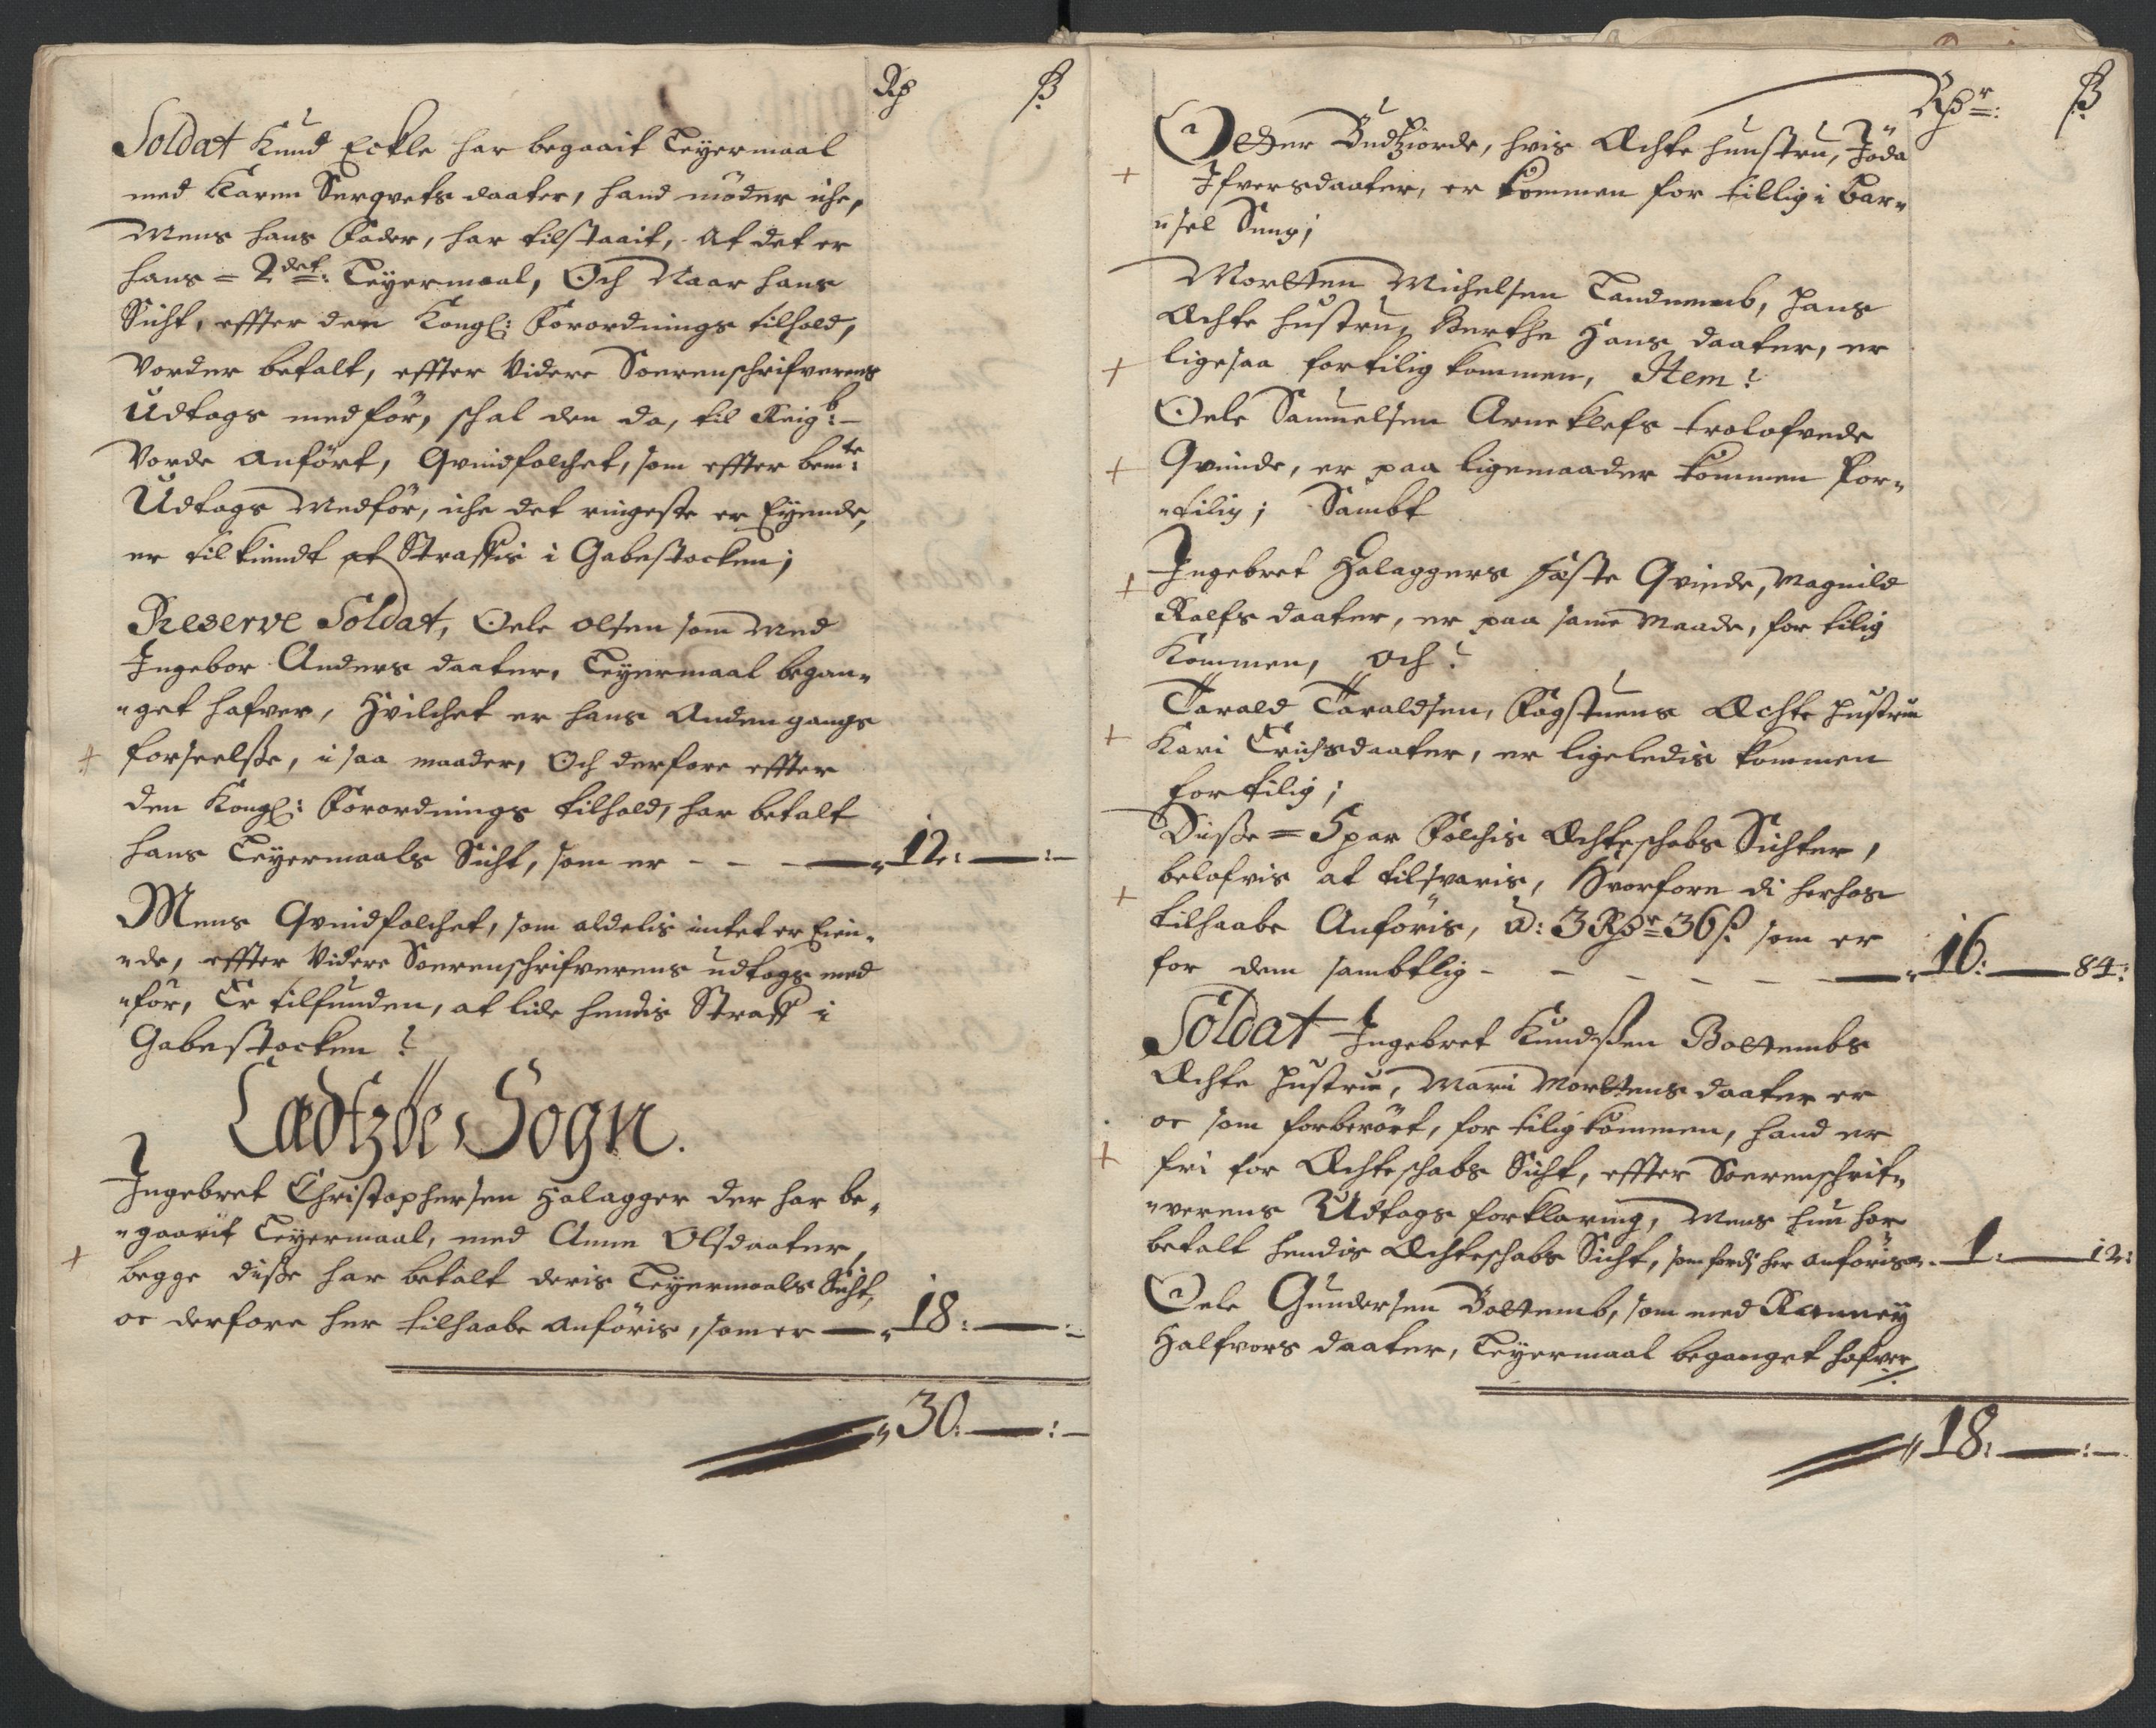 Rß ß
Soldat Knud Eckle har begaait Leyermaal
med Karen Sergvets daater, hand møder iche,
Mens hans Fader, har tilstaait, At det er
hans = 2det: Leyermaal, Och Naar hans
Sicht, effter den Kongl: Forordnings tilhold,
Vorder betalt, effter Videre Soerenschrifverens
Udtogs medför, schal den da, til Reigb: –
Vorde Anfört, Qvindfolchet, som effter bemte:
Udtogs Medför, iche det ringeste er Eyende,
er tilkiendt at Straffis i Gabestocken;
Reserve Soldat, Oele Olsen som Med
Ingebor Anders daater, Leyermaal began-
"get hafver, Hvilchet er hans Anden gangs
forseelsse, i saa maader, Och derfore effter
den Kongl: Forordnings tilhold, har betalt
hans Leyermaals Sicht, som er - - — 12: — : –
Mens Qvindfolchet, som aldelis intet er Eien-
"de, effter Videre Soerenschrifverens udtogs med
"för, Er tilfunden, at lide hendis Straff i
Gabestocken
Lædtzöe Sogn.
Ingebret Christophersen Halagger der har be-
"gaaeit Leyermaal, med Anne Olsdaater,
begge disse har betalt deris Leyermaals Sicht,
oc derfore her tilhaabe Anföris, som er — 18: — : –
30: — : –
Rßr: ß
Oetter Budtziorde, hvis Ächte hunstru, Jöda
Ifversdaater, er kommen for tillig i Bar-
"sel Seng;
Mortten Michelsen Tandnemb, hans
Ächte hustru, Berthe Hans daater, er
ligesaa fortilig kommen, Item
Oele Samuelsen Arneklefs trolofvede
Qvinde, er paa ligemaader kommen for-
"tilig; Sambt
Ingebret Halaggers fäste Qvinde, Magnild
Rolfs daater, er paa samme Maade, for tilig
Kommen, Och
Tarald Taraldsen, Fogstuens Ächte hustrue
Kari Erichsdaater, er ligeledis kommen
for tilig;
Disse = 5 par Folchis Ächteschabs Sichter,
belofvis at tilsvaris, Hvorfore di herhos
tilhaabe Anföris, à: 3 Rßr 36 ß som er
for dem sambtlig - - - - — 16: — 84:
Soldat Ingebret Knudssen Boltembs
Ächte hustrue, Mari Mortens daater er
oc som forberört, for tilig kommen, hand er
fri for Ächteschabs Sicht, effter Soerenschrif-
"verens Udtogs forklaring, Mens hun har
betalt hendis Ächteschabs Sicht, som fordj her anföris - 1: — 12:
Oele Gundersen Boltemb, som med Ranney
Halfvors daater, Leyermaal beganget hafver
18: — : –